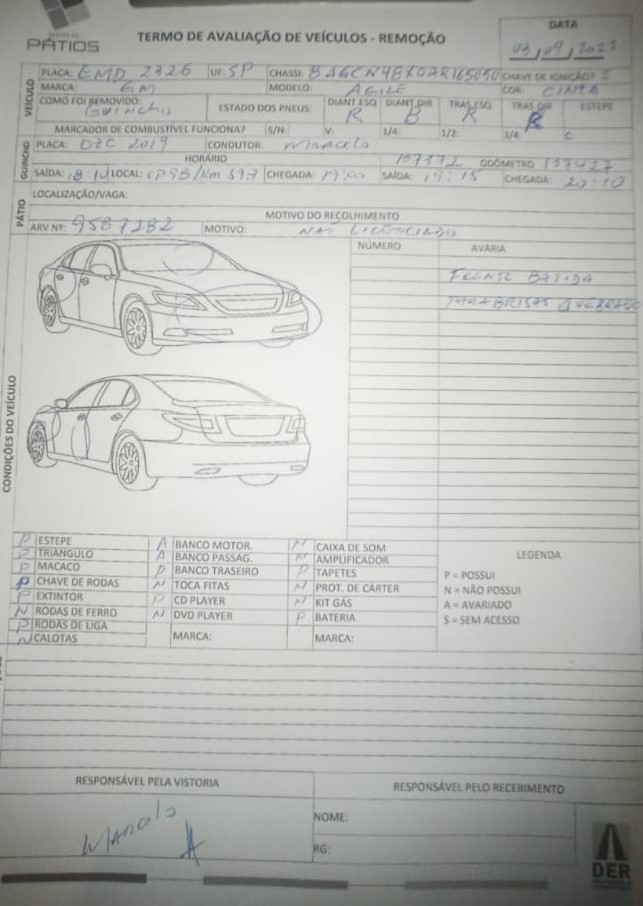 PÁTIOS
TERMO DE AVALIAÇÃO DE VEÍCULOS - REMOÇÃO
DATA
VEÍCULO
PLACA: EMD 2726 UF: SP CHASSI: CHAVE DE IGNIÇÃO? S
MARCA: GM MODELO: AGILE COR: CINZA
COMO FOI REMOVIDO: GUINCHO ESTADO DOS PNEUS: DIANT.ESQ R DIANT.DIR B TRAS.ESQ R TRAS.DIR R ESTEPE
MARCADOR DE COMBUSTÍVEL FUNCIONA? S/N V: 1/4: 1/2: 3/4: C
GUINCHO
PLACA: DZC 2019 CONDUTOR: Marcelo
HORÁRIO 137372 ODÔMETRO 137427
SAÍDA: 18:10 LOCAL: SP 98/Km 59,7 CHEGADA: 19:00 SAÍDA: 19:15 CHEGADA: 20:10
PÁTIO
LOCALIZAÇÃO/VAGA:
MOTIVO DO RECOLHIMENTO
ARV Nº: 9587282 MOTIVO: NÃO LICENCIADO
CONDIÇÕES DO VEÍCULO
NÚMERO AVARIA
FRENTE BATIDA
PARABRISAS QUEBRADO
P ESTEPE A BANCO MOTOR. N CAIXA DE SOM
P TRIANGULO A BANCO PASSAG. N AMPLIFICADOR LEGENDA
P MACACO P BANCO TRASEIRO P TAPETES P = POSSUI
P CHAVE DE RODAS N TOCA FITAS N PROT. DE CÁRTER N = NÃO POSSUI
P EXTINTOR P CD PLAYER N KIT GÁS A = AVARIADO
N RODAS DE FERRO N DVD PLAYER P BATERIA S = SEM ACESSO
P RODAS DE LIGA MARCA: MARCA:
N CALOTAS
RESPONSÁVEL PELA VISTORIA RESPONSÁVEL PELO RECEBIMENTO
Marcelo
NOME:
RG:
DER